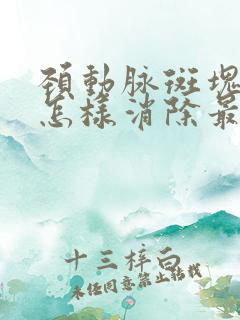 頸動脈斑塊
怎樣消除最
十三梓白
未经同意禁止转载